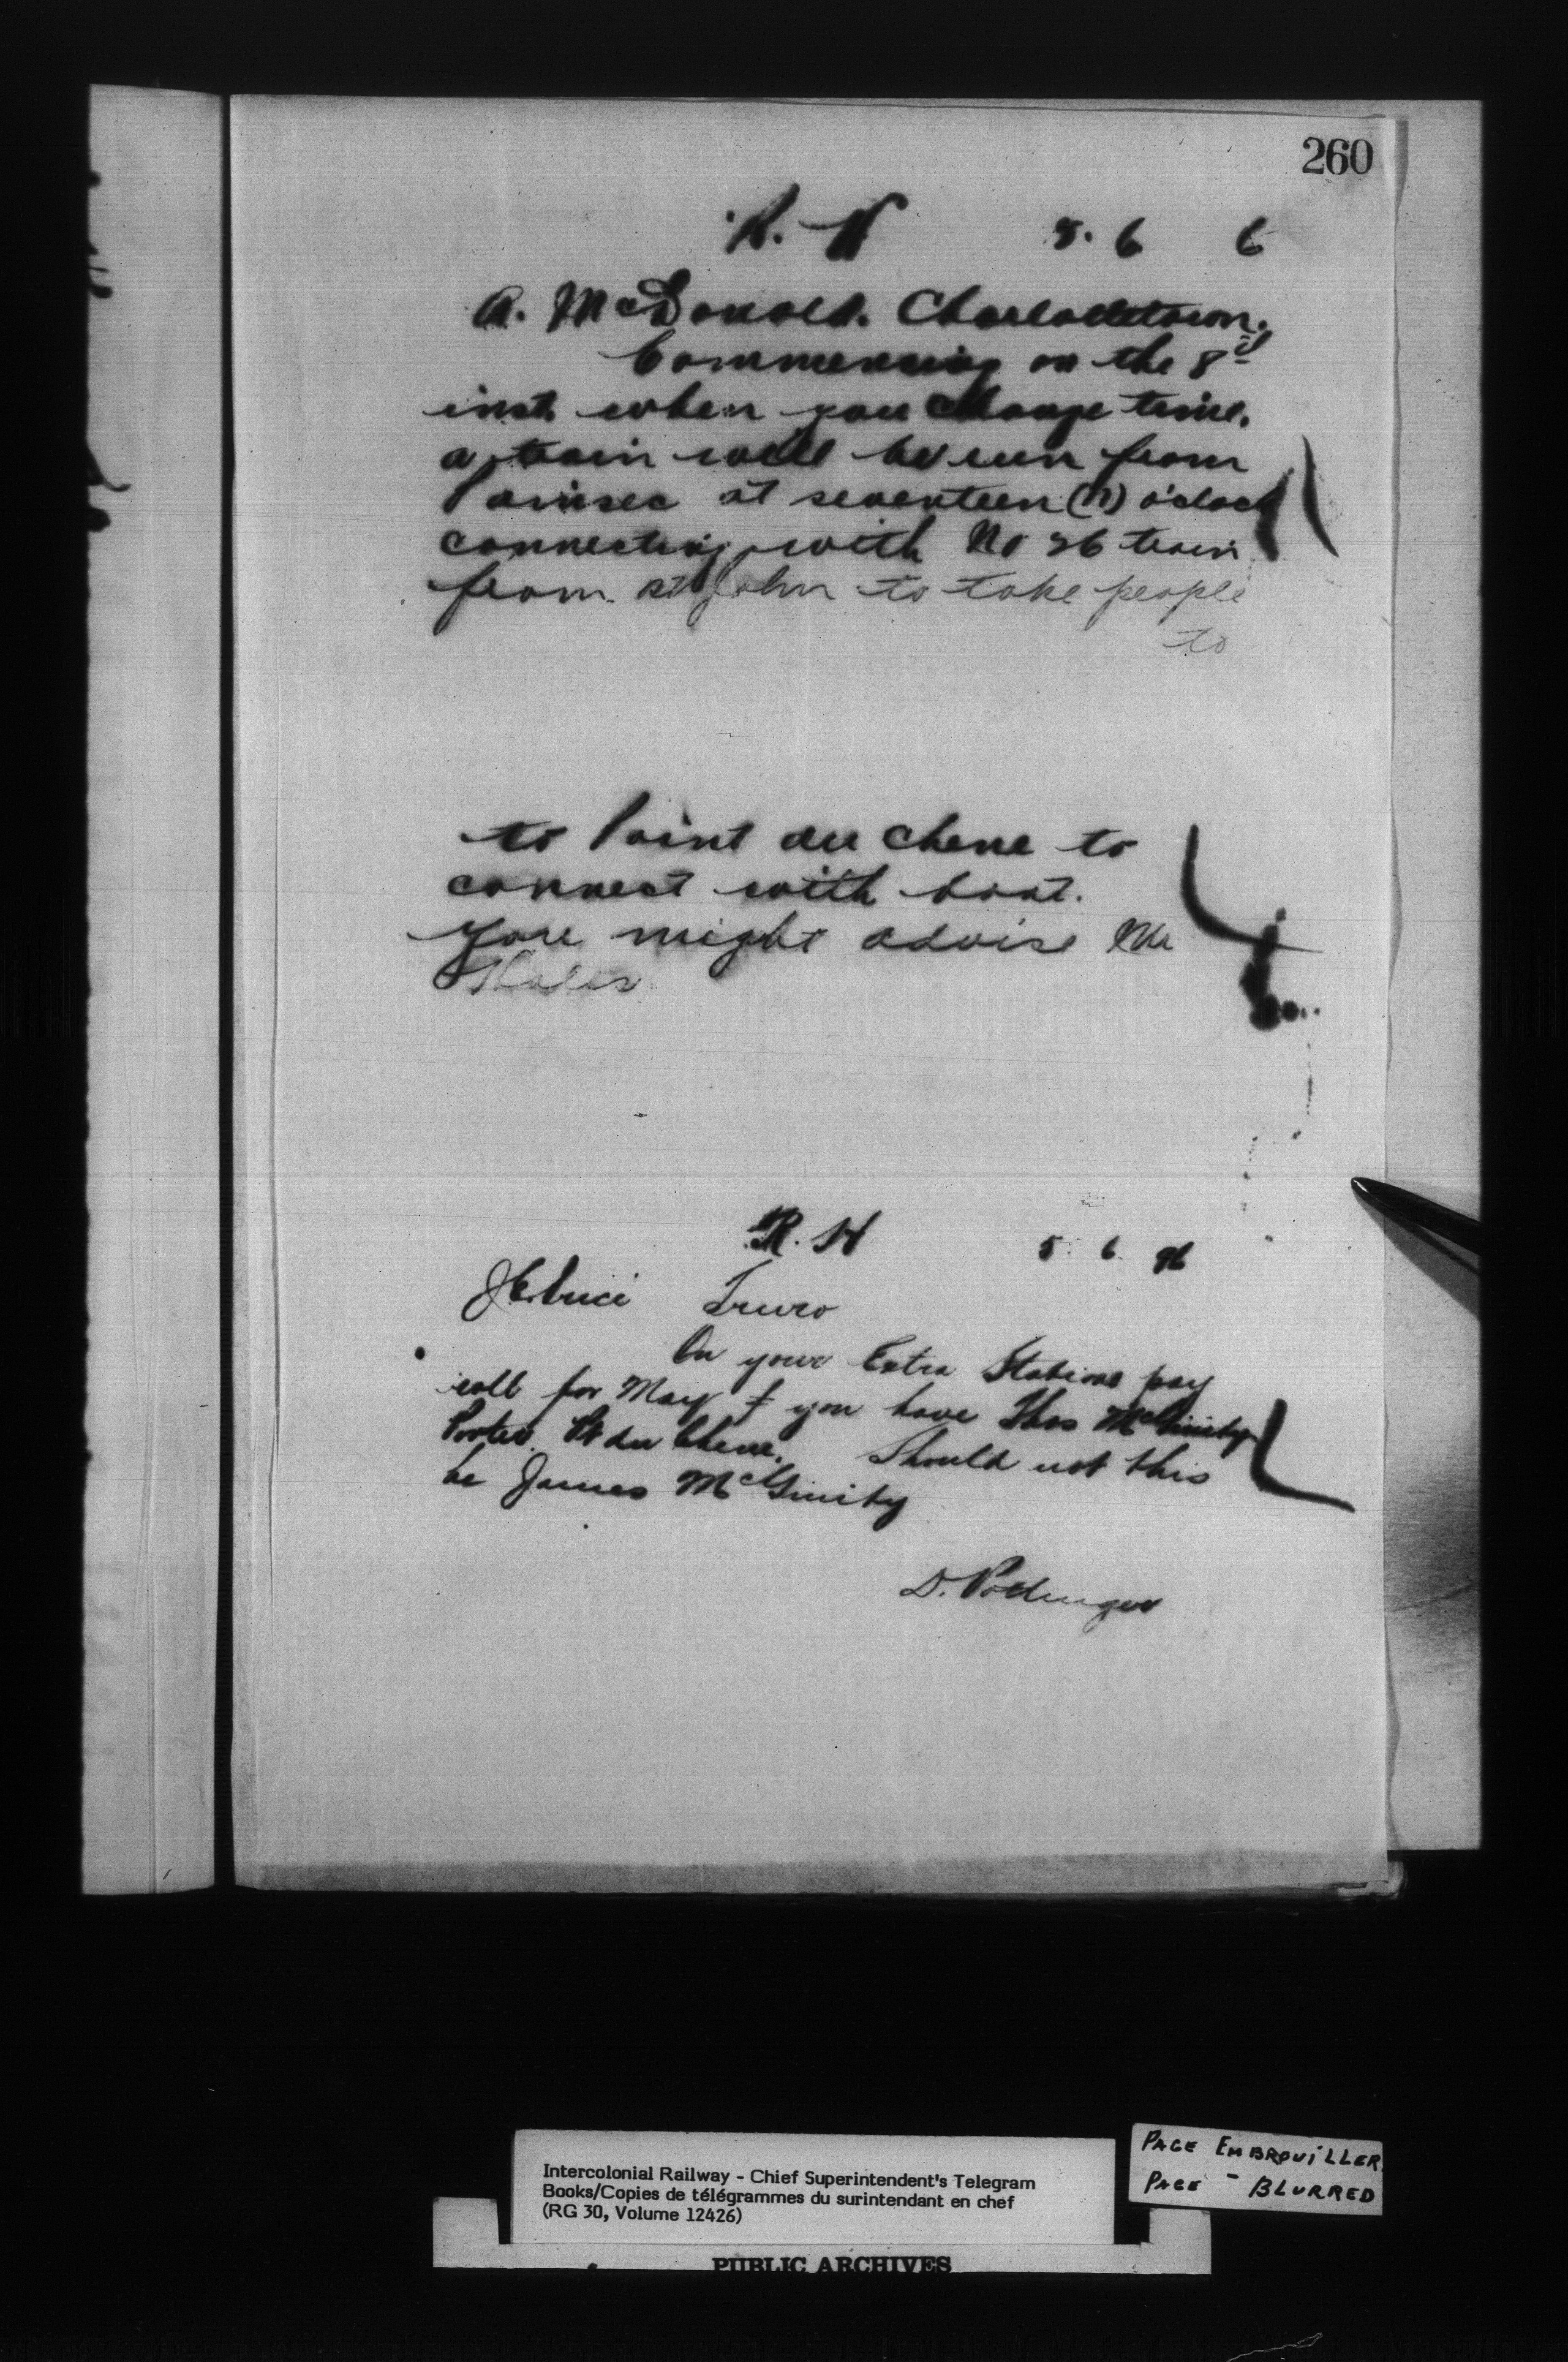 260
R. H 5. 6 6
A. McDonald. Charlottetown.
Commencing on the 8th
inst. when you change time.
a train will be run from
Painsec at seventeen (17) o'clock
connecting with No 26 train
from St John to take people
to
to Point du chene to
connect with boat.
you might advise Mr
Hales
R. H 5. 6 96
Truro
On your Extra Stations pay
roll for May you have Thos McGinity
Porter Pt du Chene. Should not this
be James McGinity
D. Pottinger
Intercolonial Railway - Chief Superintendent's Telegram
Books/Copies de télégrammes du surintendant en chef
(RG 30, Volume 12426)
PAGE EMBROUILLER
PAGE - BLURRED
PUBLIC ARCHIVES